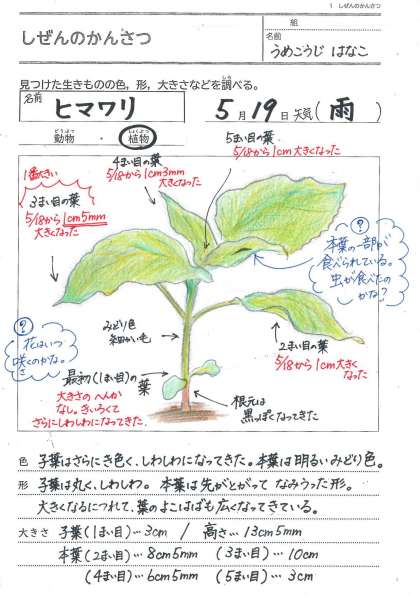 1 しぜんのかんさつ
しぜんのかんさつ
組
名前
うめこうじ はなこ
見つけた生きものの色，形，大きさなどを調べる。
しら
名前
ヒマワリ
5月19日 天気（雨）
どうぶつ
動物
・
しょくぶつ
植物
5まい目の葉
5/18から1cm大きくなった
4まい目の葉
5/18から1cm3mm
大きくなった
1番大きい
3まい目の葉
5/18から1cm5mm
大きくなった
?
本葉の一部が
食べられている。
虫が食べたの
かな?
?
花はいつ
咲くのかな。
さ
みどり色
細かい毛
2まい目の葉
5/18から1cm大きく
なった
最初(1まい目)の
葉
大きさのへんか
なし。きいろくて
さらにしわしわになってきた。
根元は
黒っぽくなってきた
色 子葉はさらにき色く、しわしわになってきた。本葉は明るいみどり色。
形 子葉は丸く、しわしわ。本葉は先がとがって なみうった形。
大きくなるにつれて、葉のよこはばも広くなってきている。
大きさ 子葉(1まい目)…3cm / 高さ…13cm5mm
本葉(2まい目)…8cm5mm (3まい目)…10cm
(4まい目)…6cm5mm (5まい目)…3cm